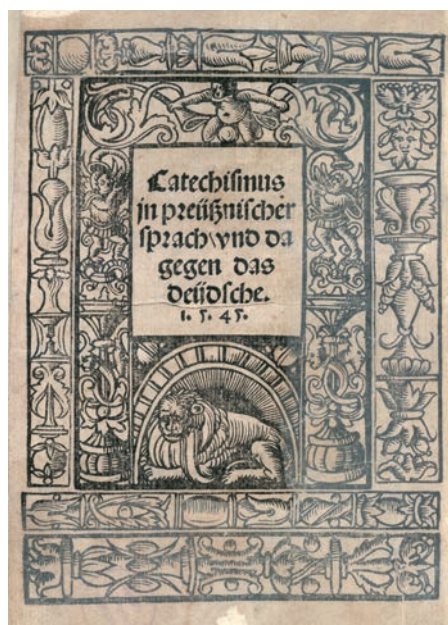 Catechismus
jn preüßnischer
sprach\vnd da
gegen das
deüdsche.
1. 5. 45.